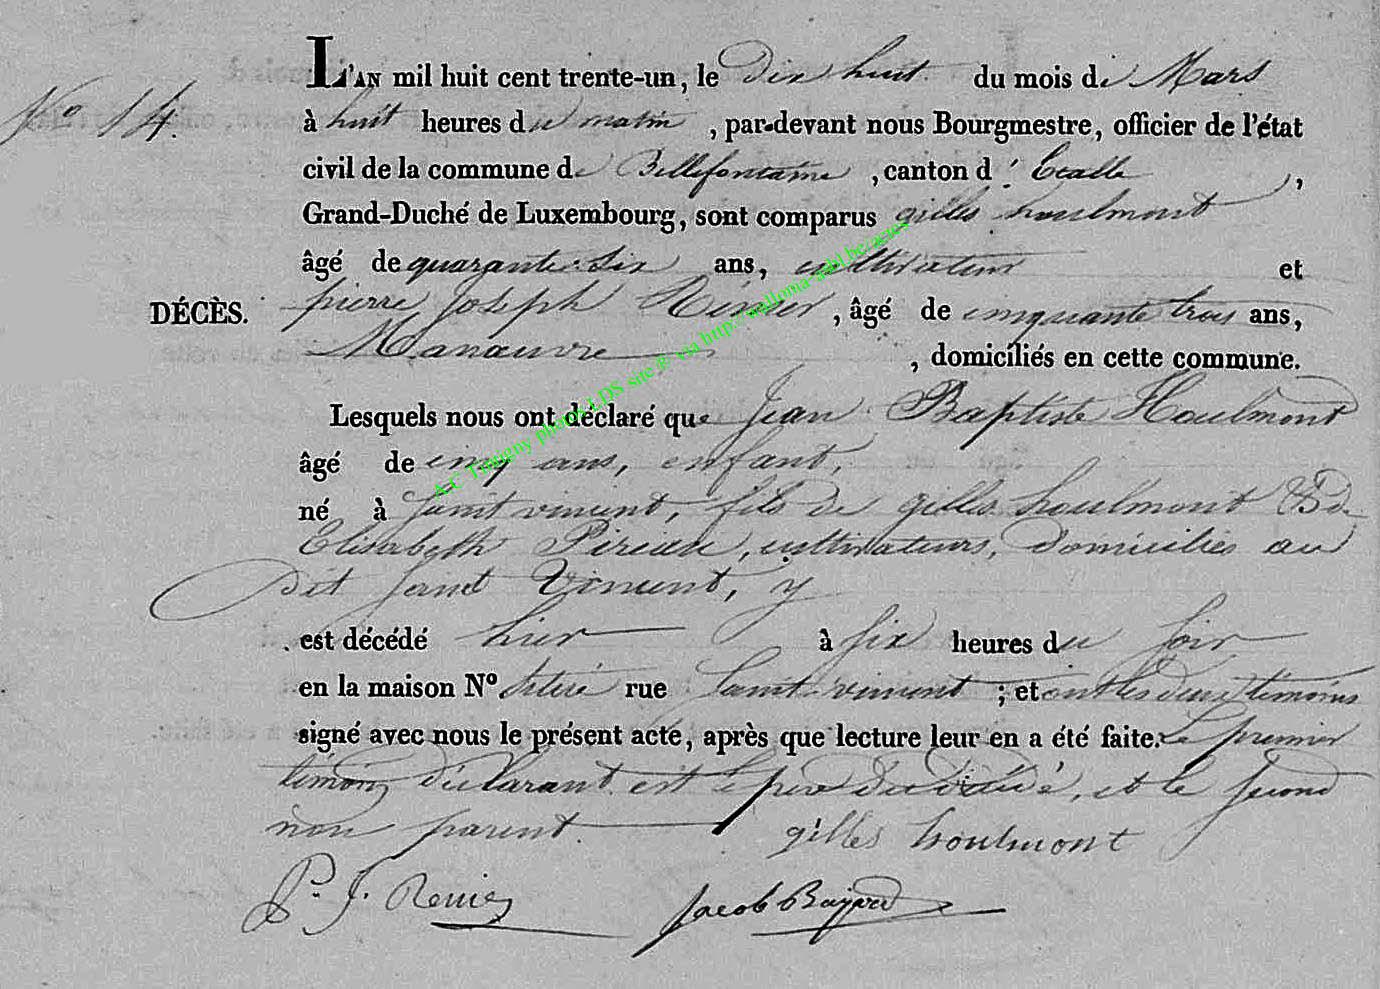 L'AN mil huit cent trente-un, le Dix huit du mois de Mars
No 14. à huit heures du matin, par-devant nous Bourgmestre, officier de l'état
civil de la commune de Bellefontaine, canton d'Etalle,
Grand-Duché de Luxembourg, sont comparus gilles houlmont
âgé de quarante-six ans, cultivateur et
DÉCÈS. pierre Joseph, âgé de cinquante trois ans,
Manœuvre, domiciliés en cette commune.
Lesquels nous ont déclaré que Jean Baptiste Houlmont
âgé de cinq ans, enfant,
né à Saint vincent, fils de gilles houlmont & de
Elisabeth, cultivateurs, domiciliés au
Dit Saint Vincent, y
est décédé hier à six heures du soir
en la maison No. sitée rue Saint-vincent ; et ont les deux témoins
signé avec nous le présent acte, après que lecture leur en a été faite. Le premier
témoin déclarant est le père du décédé, et le second
non parent. gilles houlmont
P. J. Renier Jacob
A.C Tintigny photo LDS site @ via http://wallonia-asbl.be/actes